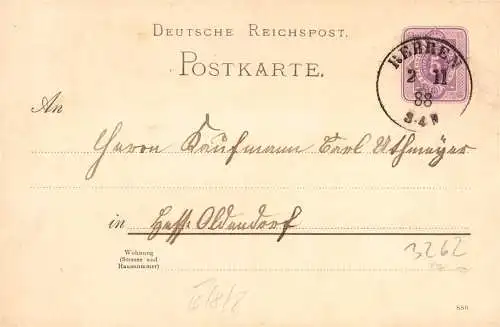 DEUTSCHE REICHSPOST.
POSTKARTE.
REHREN
2 11
88
3-4 N
An
Herrn Kaufmann Carl Uthmeyer
in Hess. Oldendorf
Wohnung
(Strasse und
Hausnummer)
3262
888